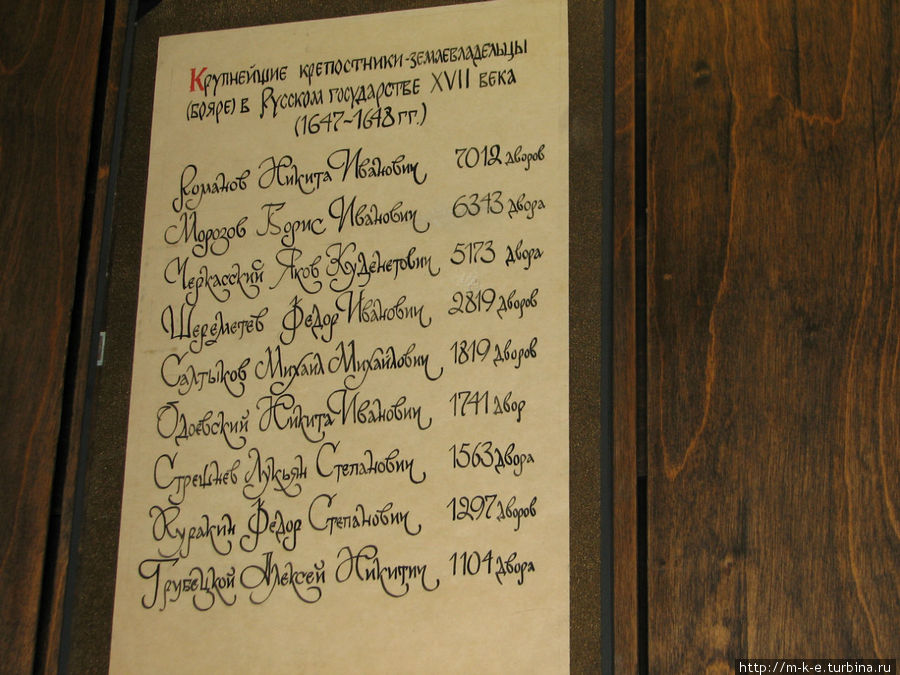 Крупнейшие крепостники-землевладельцы
(бояре) в Русском государстве XVII века
(1647-1648 гг.)
Романов Никита Иванович 7012 дворов
Морозов Борис Иванович 6343 двора
Черкасский Яков Куденетович 5173 двора
Шереметев Федор Иванович 2819 дворов
Салтыков Михаил Михайлович 1819 дворов
Одоевский Никита Иванович 1741 двор
Стрешнев Лукьян Степанович 1563 двора
Куракин Федор Степанович 1297 дворов
Трубецкой Алексей Никитич 1104 двора
http://m-k-e.turbina.ru